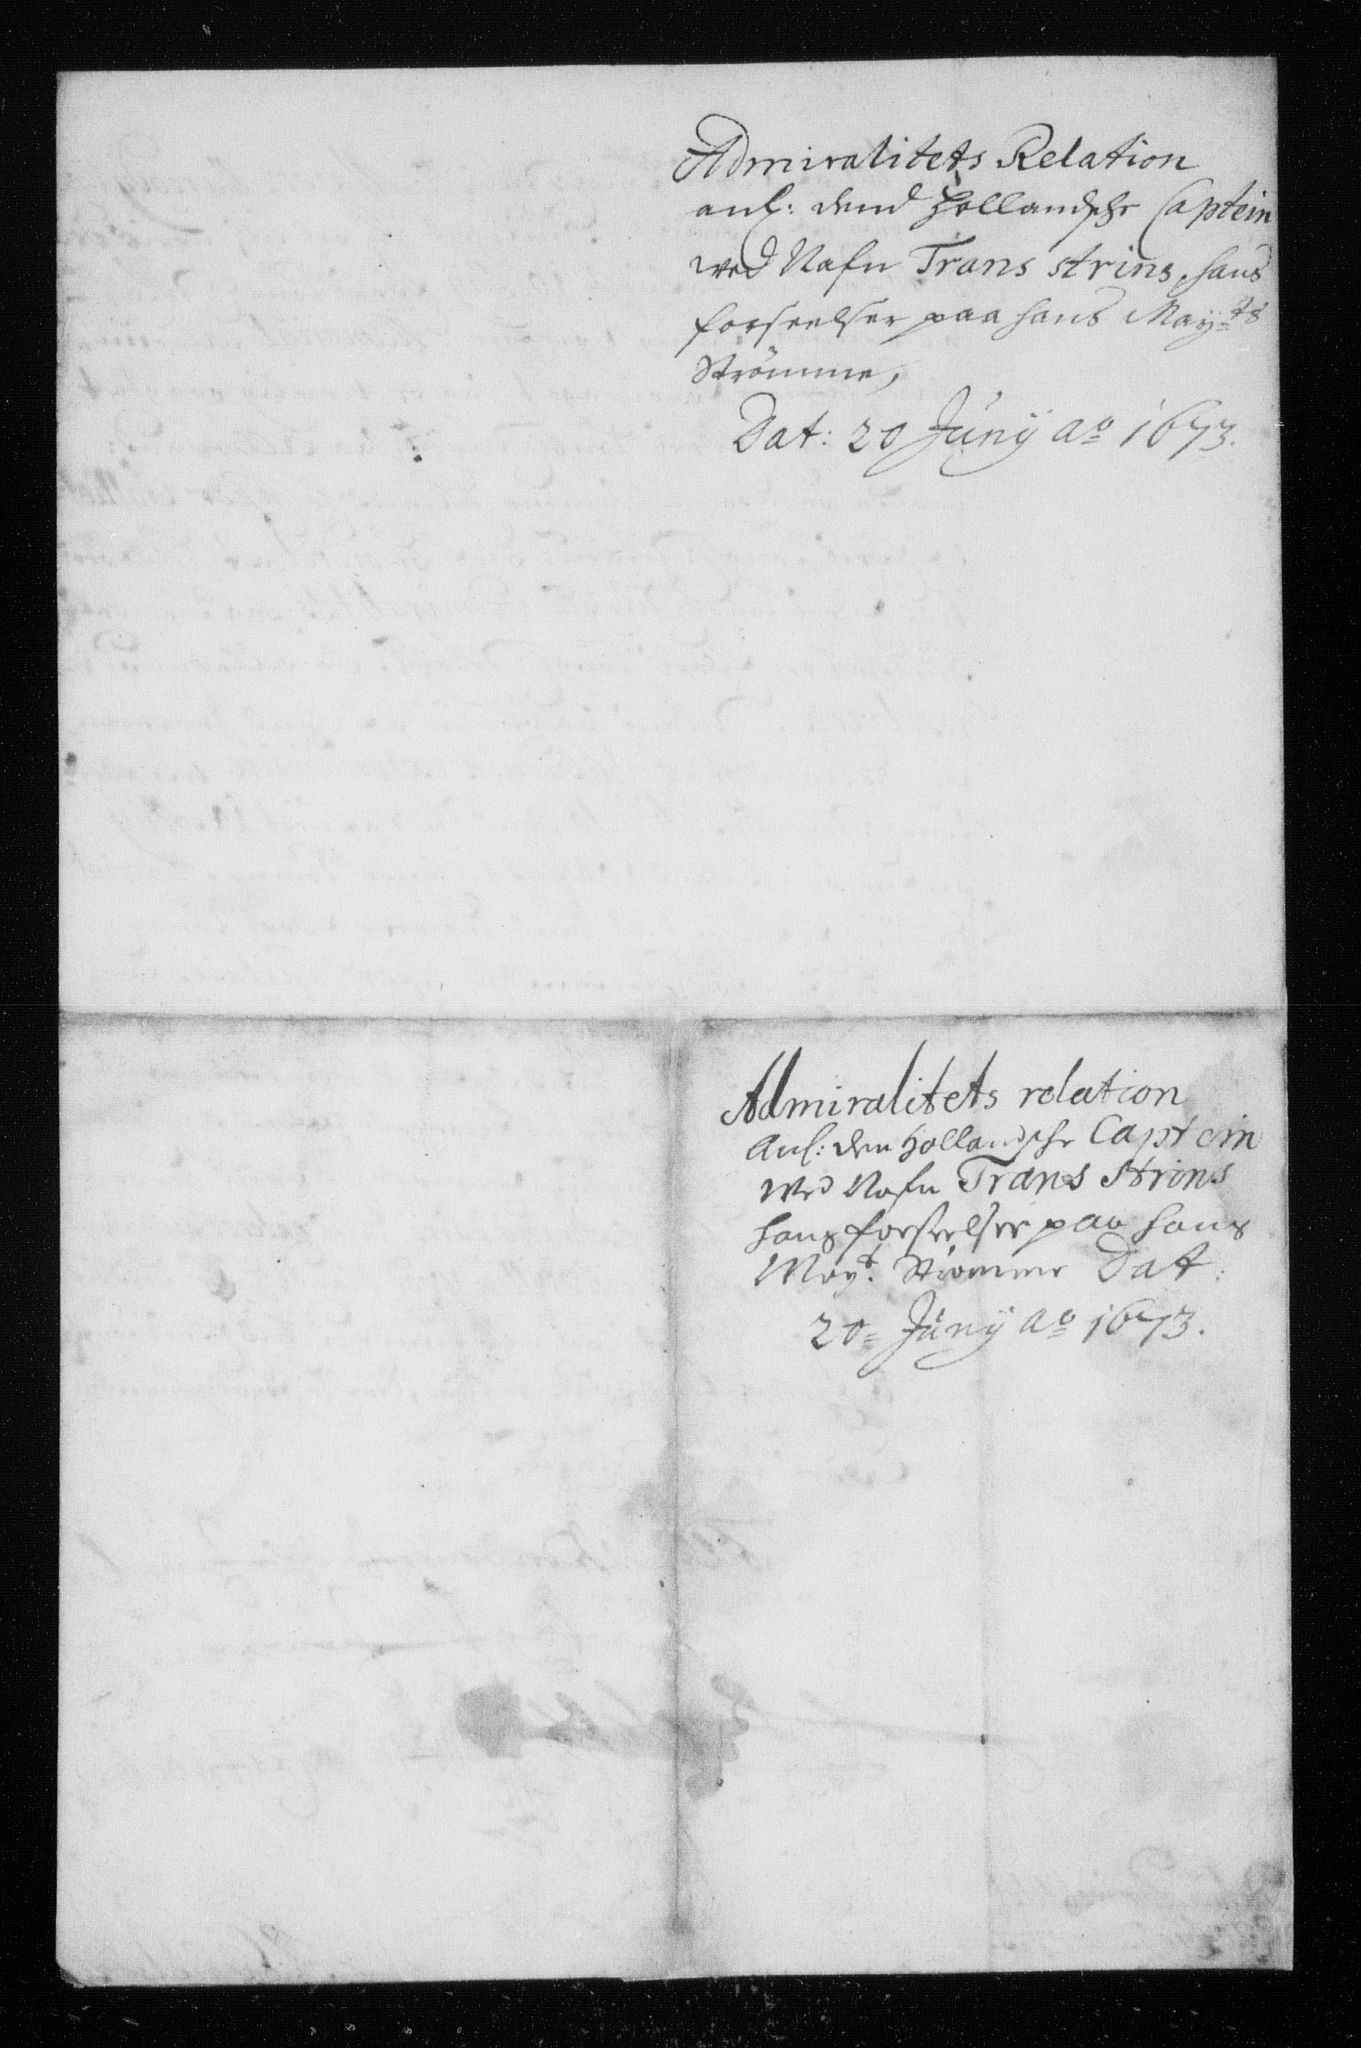 Admiralitets Relation
anl: dend Hollandsche Captein
ved Nafn Trans strins, hans
forseelser paa hans May:ts
Strömme,
Dat: 20 Júny ao 1673.
Admiralitets relation
Anl: den Hollandsche Captein
Ved Nafn Trans Strins
hans forseelser paa hans
Mayt. Strömme Dat:
20= Júny Ao 1673.